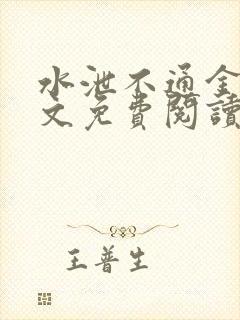 水泄不通全
文免費閱讀
王普生